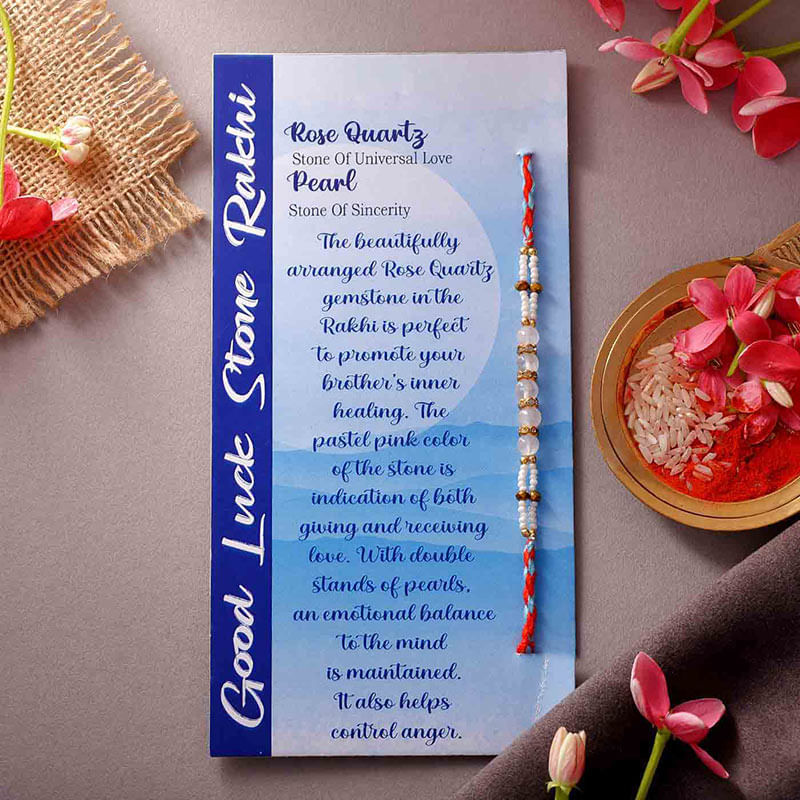 Good Luck Stone Rakhi
Rose Quartz
Stone Of Universal Love
Pearl
Stone Of Sincerity
The beautifully
arranged Rose Quartz
gemstone in the
Rakhi is perfect
to promote your
brother's inner
healing. The
pastel pink color
of the stone is
indication of both
giving and receiving
love. With double
stands of pearls,
an emotional balance
to the mind
is maintained.
It also helps
control anger.